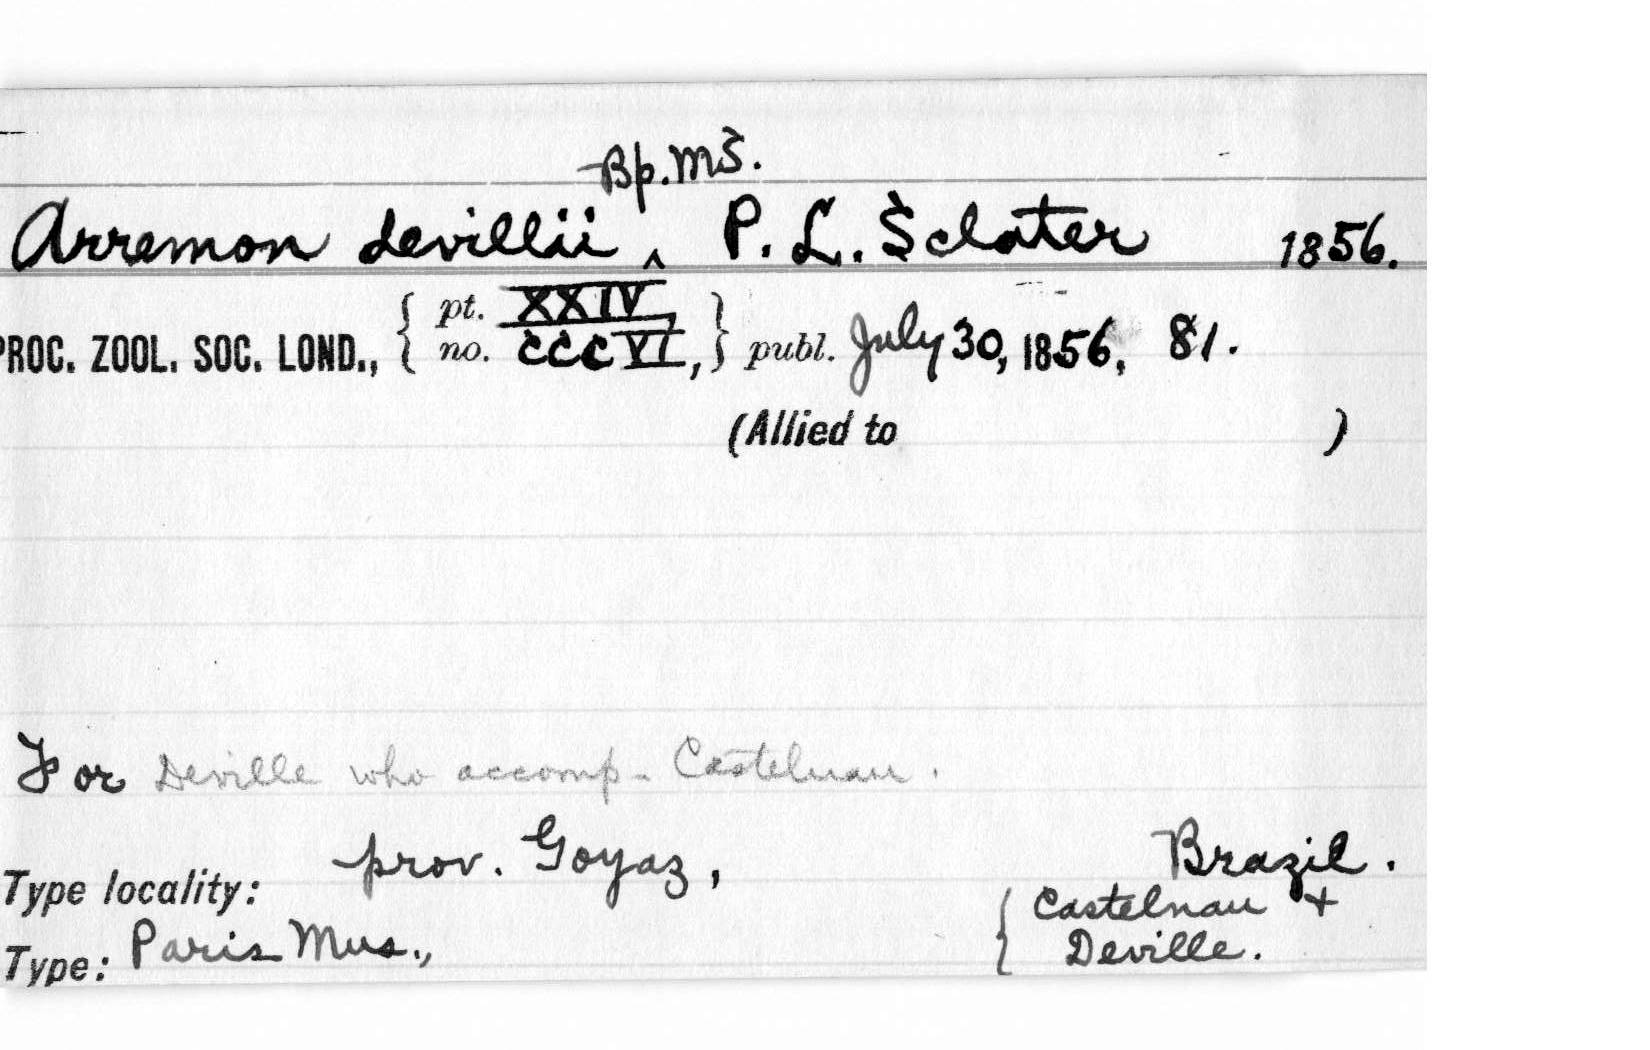 Bp. MS.
Arremon devillii ‸ P. L. Sclater 1856.
PROC. ZOOL. SOC. LOND., { pt. XXIV, } publ. July 30, 1856, 81.
no. CCCVI,
(Allied to )
For Deville who accomp. Castelnau.
Type locality: prov. Goyaz, Brazil.
Type: Paris Mus., { Castelnau +
Deville.